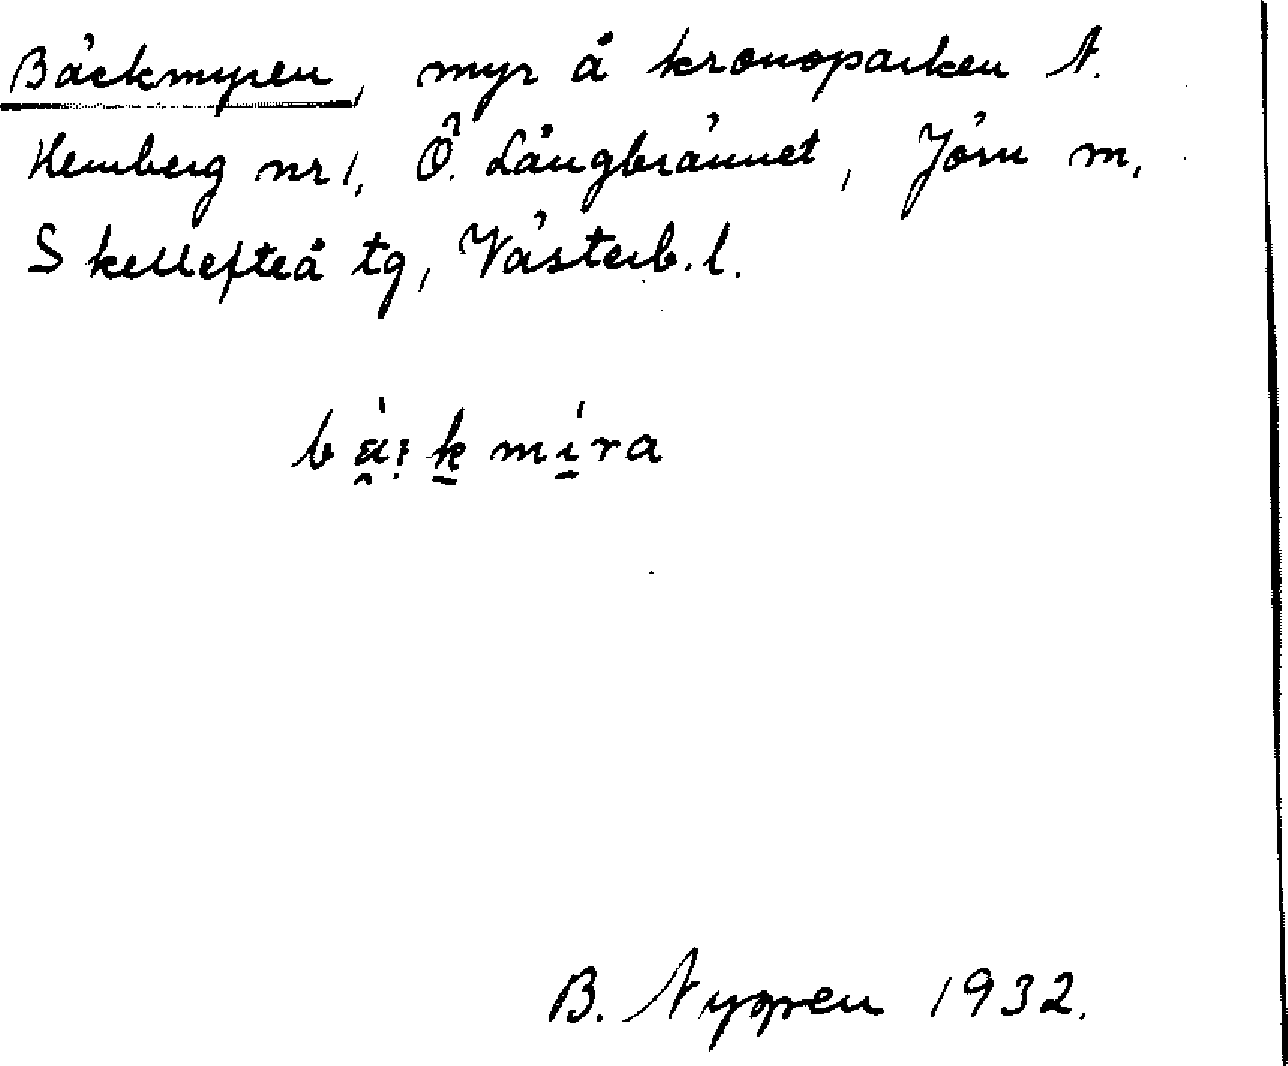 Bäckmyren, myr å kronoparken N.
Hemberg nr 1, Ö. Långbrännet, Jörn sn,
Skellefteå tg, Västerb. l.
B. Nygren 1932.